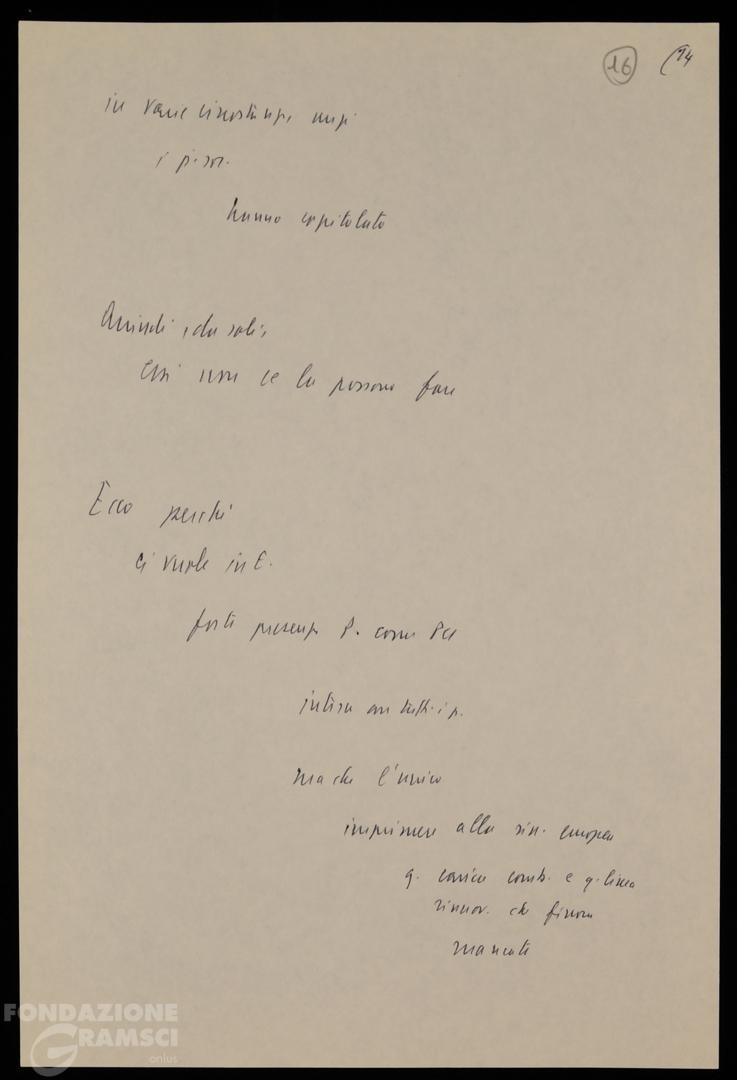 16 (14
in varie circostanze, anzi
i p. soc.
hanno capitolato
Quindi, da soli,
essi non ce la possono fare
Ecco perché
ci vuole in E.
forte presenza P. come PCI
intesa con tutti i p.
ma che l'unico
imprimere alla sin. europea
q. carica comb. e q. linea
rinnov. che finora
mancate
FONDAZIONE
GRAMSCI
onlus